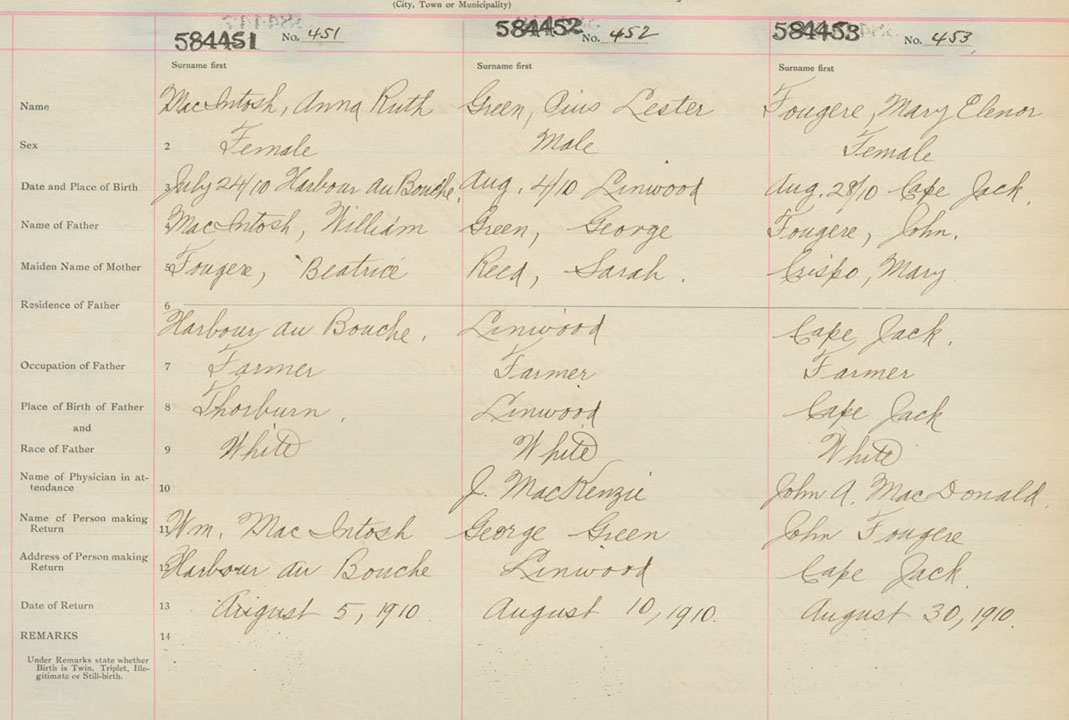 (City, Town or Municipality)
584451 No. 451 584452 No. 452 584453 No. 453
Surname first Surname first Surname first
Name MacIntosh, Anna Ruth Green, Pius Lester Fougere, Mary Elenor
Sex 2 Female Male Female
Date and Place of Birth 3 July 24/10 Harbour au Bouche. Aug. 4/10 Linwood Aug. 28/10 Cape Jack.
Name of Father MacIntosh, William Green, George Fougere, John.
Maiden Name of Mother 5 Fougere, Beatrice Reed, Sarah. Crispo, Mary
Residence of Father 6
Harbour au Bouche. Linwood Cape Jack.
Occupation of Father 7 Farmer Farmer Farmer
Place of Birth of Father 8 Thorburn. Linwood Cape Jack
and
Race of Father 9 White White White
Name of Physician in at-
tendance 10 J. MacKenzie John A. MacDonald.
Name of Person making
Return 11 Wm. MacIntosh George Green John Fougere
Address of Person making
Return 12 Harbour au Bouche Linwood Cape Jack.
Date of Return 13 August 5, 1910 August 10, 1910. August 30, 1910.
REMARKS 14
Under Remarks state whether
Birth is Twin, Triplet, Ille-
gitimate or Still-birth.